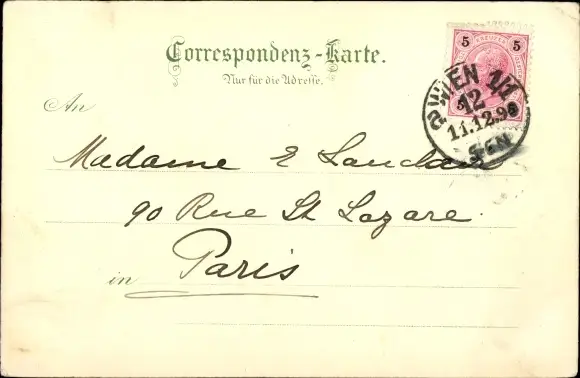 Correspondenz-Karte.
Nur für die Adresse.
5 5
WIEN 1/1
12
11.12.98
An
Madame E
90 Rue St Lazare.
in Paris